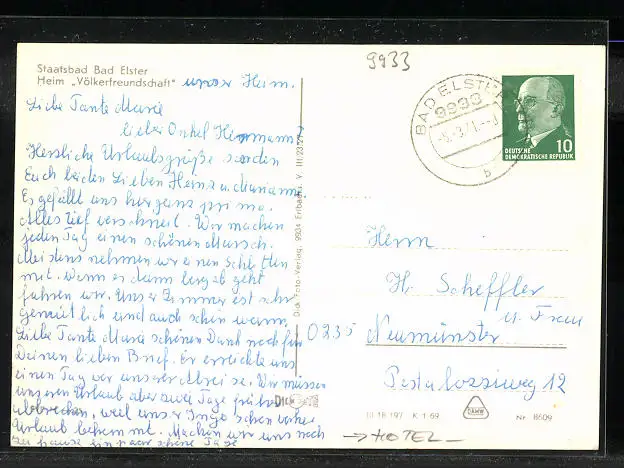 9933
Staatsbad Bad Elster
Heim „Völkerfreundschaft"
unser Heim.
Liebe Tante Marie
lieber Onkel Hermann!
Herzliche Urlaubsgrüße senden
Euch beiden Lieben Heinz u. Marianne
Es gefällt uns hier ganz prima.
Alles tief verschneit. Wir machen
jeden Tag einen schönen Marsch.
Meistens nehmen wir einen Schlitten
mit. Wenn es dann bergab geht
fahren wir. Unser Zimmer ist sehr
gemütlich und auch schön warm.
Liebe Tante Marie schönen Dank noch für
Deinen lieben Brief. Er erreichte uns
einen Tag vor unserer Abreise. Wir müssen
unseren Urlaub aber zwei Tage früher
abbrechen, weil unser Ingo schon vorher
Urlaub bekommt. Machen wir uns noch
zu Hause ein paar schöne Tage
Dick Foto-Verlag, 9934 Erlbach i. V. III 23 27
BAD ELSTER
9933
b
10
DEUTSCHE
DEMOKRATISCHE REPUBLIK
Herrn
H. Scheffler
u. Frau
0235 Neumünster
Pestalozziweg 12
III 18 197 K 1/69
DAWW
Nr. 8609
→ HOTEL –